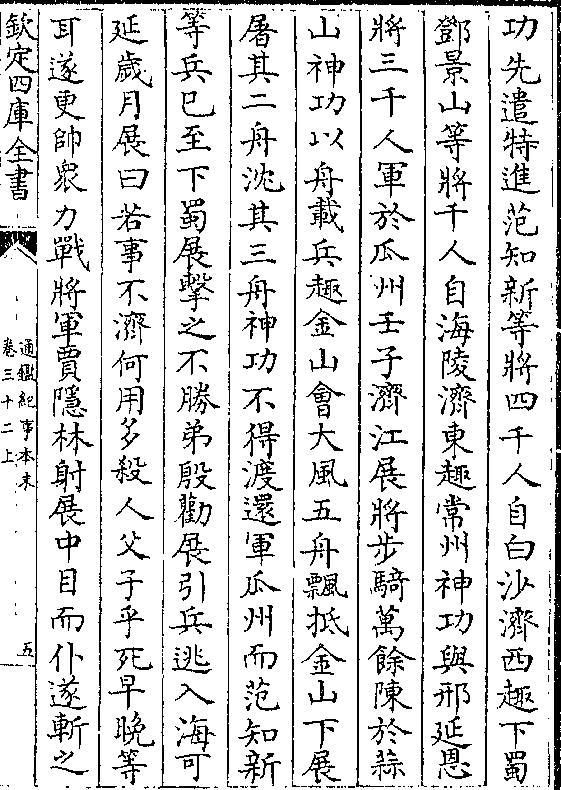 功先遣特進范知新等將四千人自白沙濟西趣下蜀
鄧景山等將千人自海陵濟東趣常州神功與邢延恩
將三千人軍於瓜州壬子濟江展將步騎萬餘陳於蒜
山神功以舟載兵趣金山會大風五舟飄抵金山下展
屠其二舟沈其三舟神功不得渡還軍瓜州而范知新
等兵已至下蜀展擊之不勝弟殷勸展引兵逃入海可
延歲月展曰若事不濟何用多殺人父子乎死早晚等
耳遂更帥衆力戰將軍賈隱林射展中目而仆遂斬之
欽定四庫全書
通鑑紀事本末
卷三十二上
五